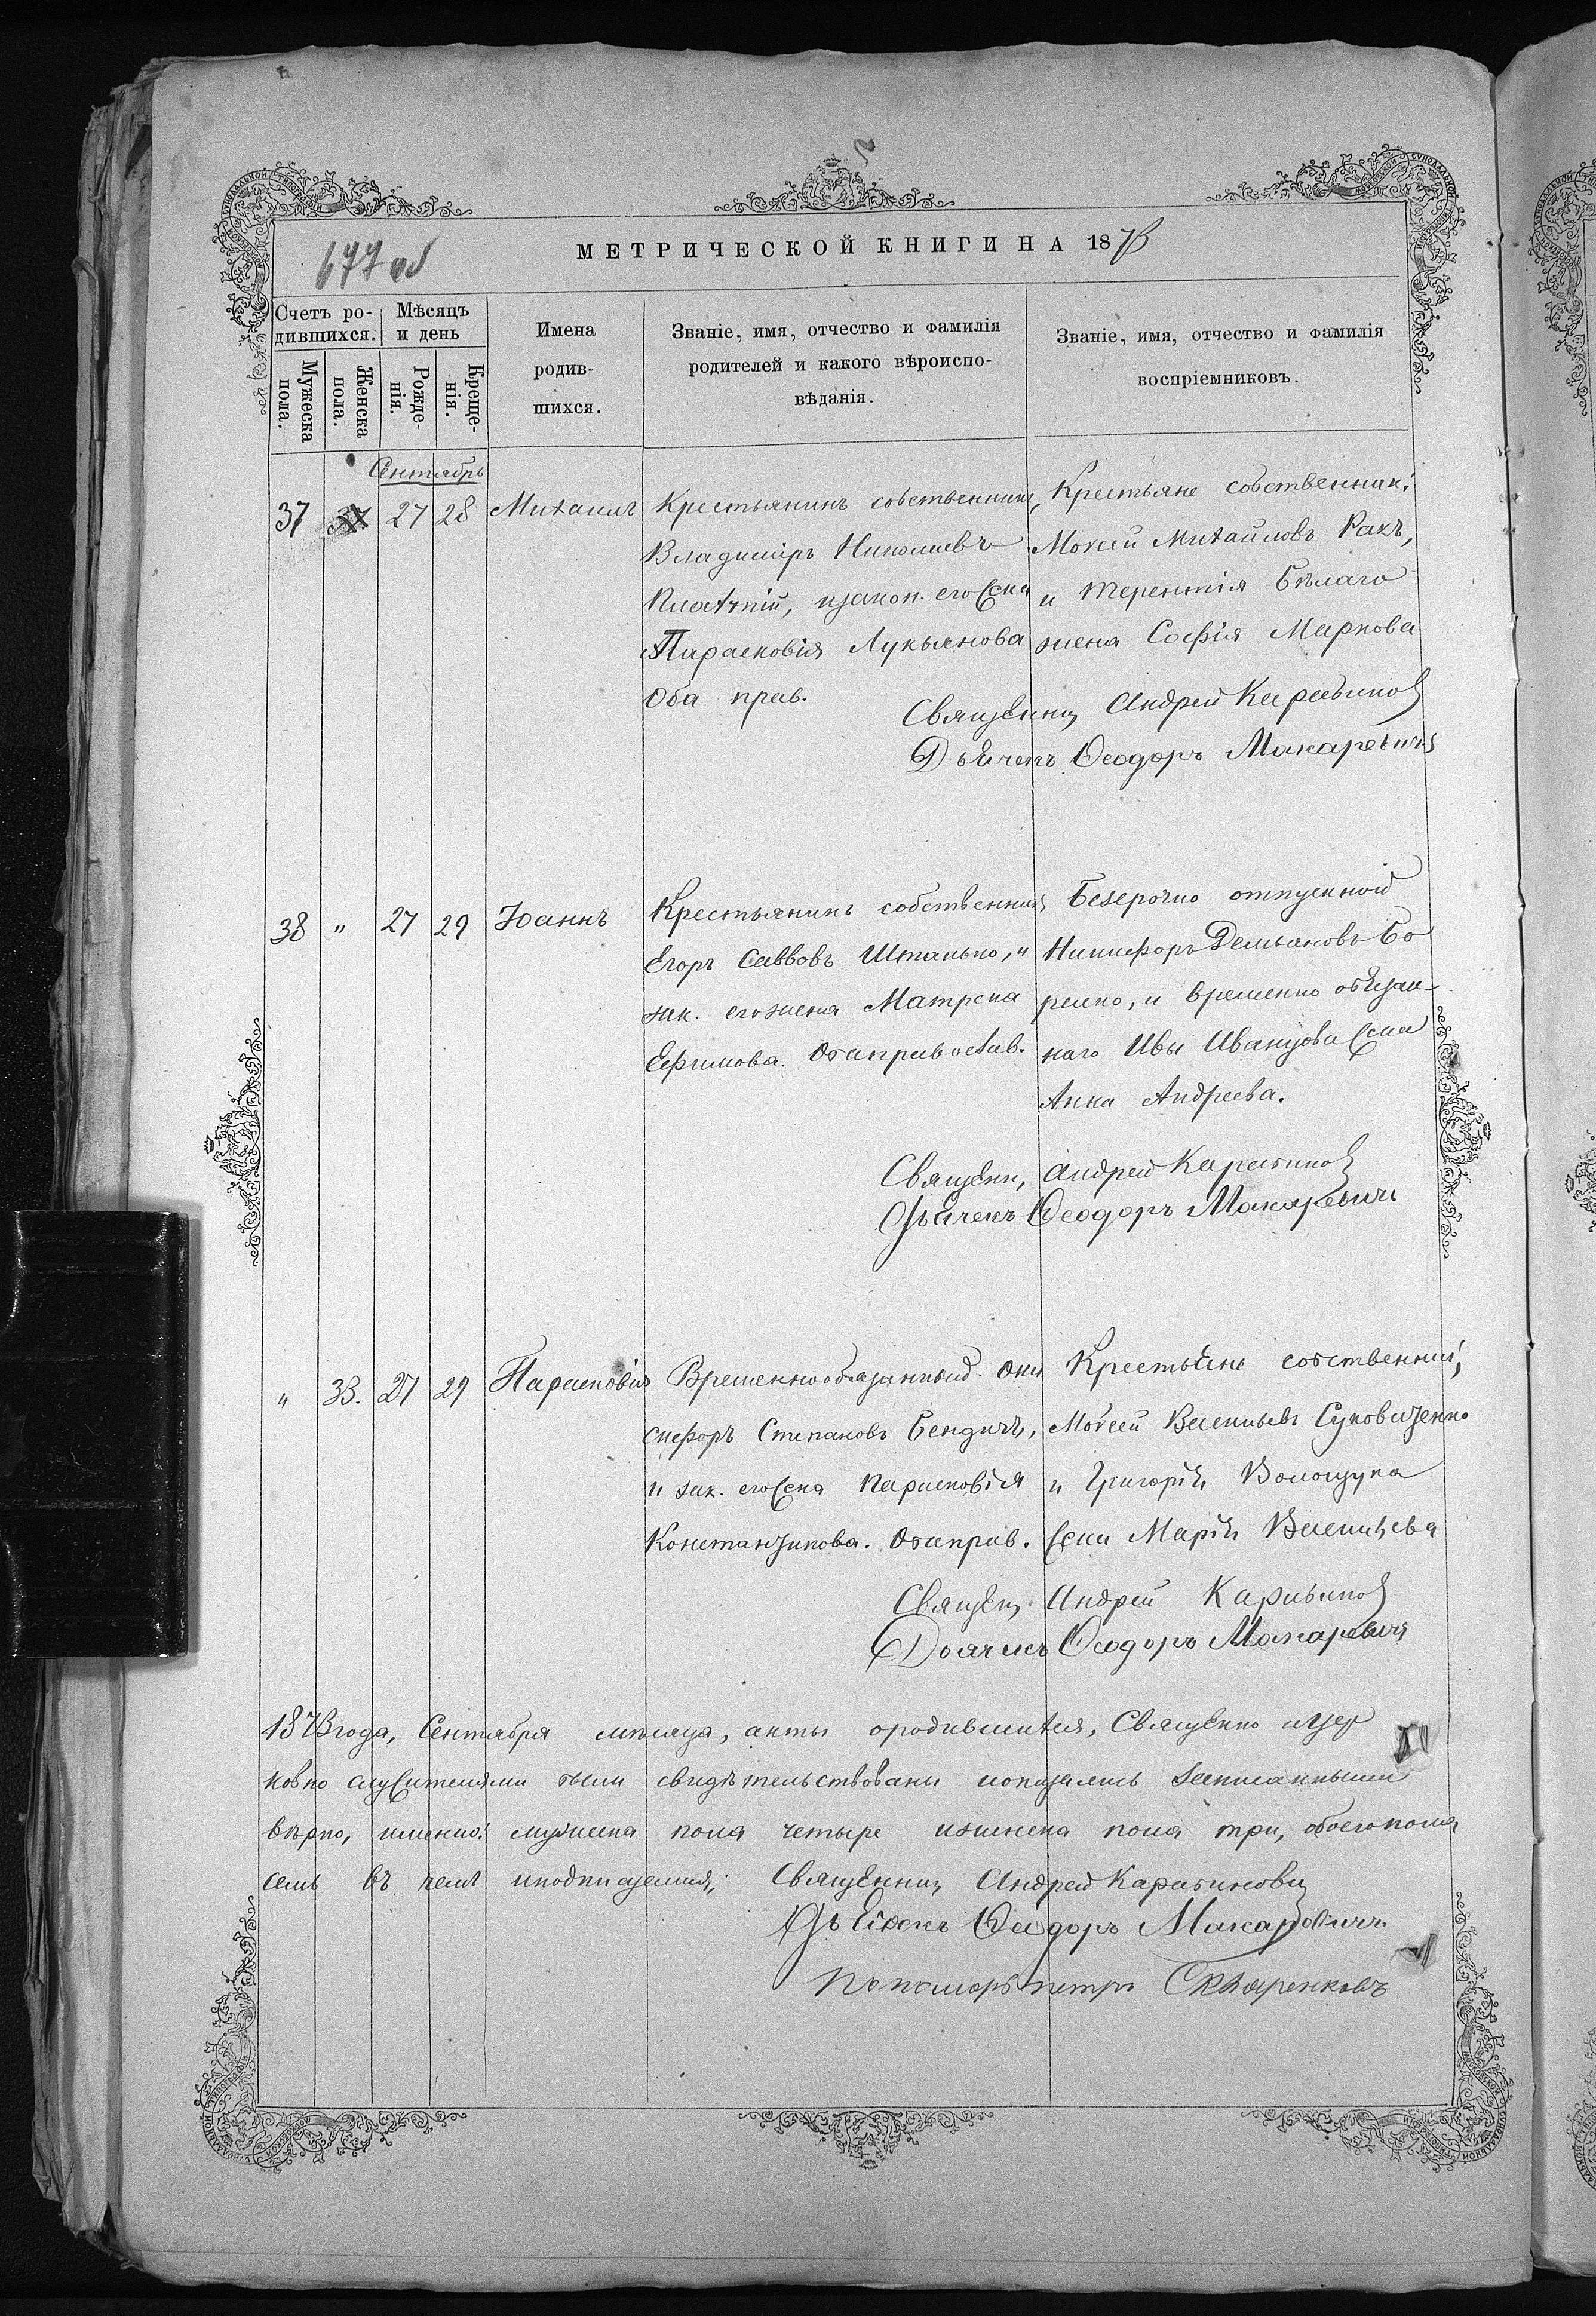 677 об
МЕТРИЧЕСКОЙ КНИГИ НА 1873
Счетъ ро-
дившихся.
Мѣсяцъ
и день
Мужеска
пола.
Женска
пола.
Рожде-
нія.
Креще-
нія.
Имена
родив-
шихся.
Званіе, имя, отчество и фамилія
родителей и какого вѣроиспо-
вѣданія.
Званіе, имя, отчество и фамилія
воспріемниковъ.
Сентябрь
37 27 28 Михаилъ
Крестьянинъ собственникъ,
Владиміръ Николаевъ
изакон. его жена
Парасковія Лукьянова
Оба прав.
Крестьяне собственники:
Моѵсей Михайловъ Ракъ,
и Терентія Бѣлаго
жена Софія Маркова
Священникъ Андрей Карабиновъ
Дьячекъ Ѳеодоръ Макаревичъ
38 " 27 29 Іоаннъ
Крестьянинъ собственникъ,
Егоръ Саввовъ Штанько, и
зак. его жена Матрена
Ефимова. Оба православ.
Безсрочно отпускной
Никифоръ Демьяновъ Бо
ренко, и временно обязан-
наго Ивы Иванцова жена
Анна Андреева.
Священ. Андрей Карабиновъ
Дьячекъ Ѳеодоръ Макаревичъ
" 33. 27 29 Парасковія
Временнообязанный Они
сифоръ Степановъ Бендичъ,
и зак. его жена Парасковія
Константинова. Оба прав.
Крестьяне собственники,
Моѵсей Васильевъ
и Григорія Волощука
жена Марія Васильева
Священ. Андрей Карабиновъ
Дьячекъ Ѳеодоръ Макаревичъ
1873 года, Сентября мѣсяца, акты ородившихся, Священно ицер
ковно служителями были свидѣтельствованы иоказались записанными
вѣрно, именно: мужеска пола четыре иженска пола три, обоего пола
семь въ чемъ иподписуемся, Священникъ Андрей Карабиновъ
Дьячекъ Ѳеодоръ Макаревичъ
Пономарь петръ Скляренковъ